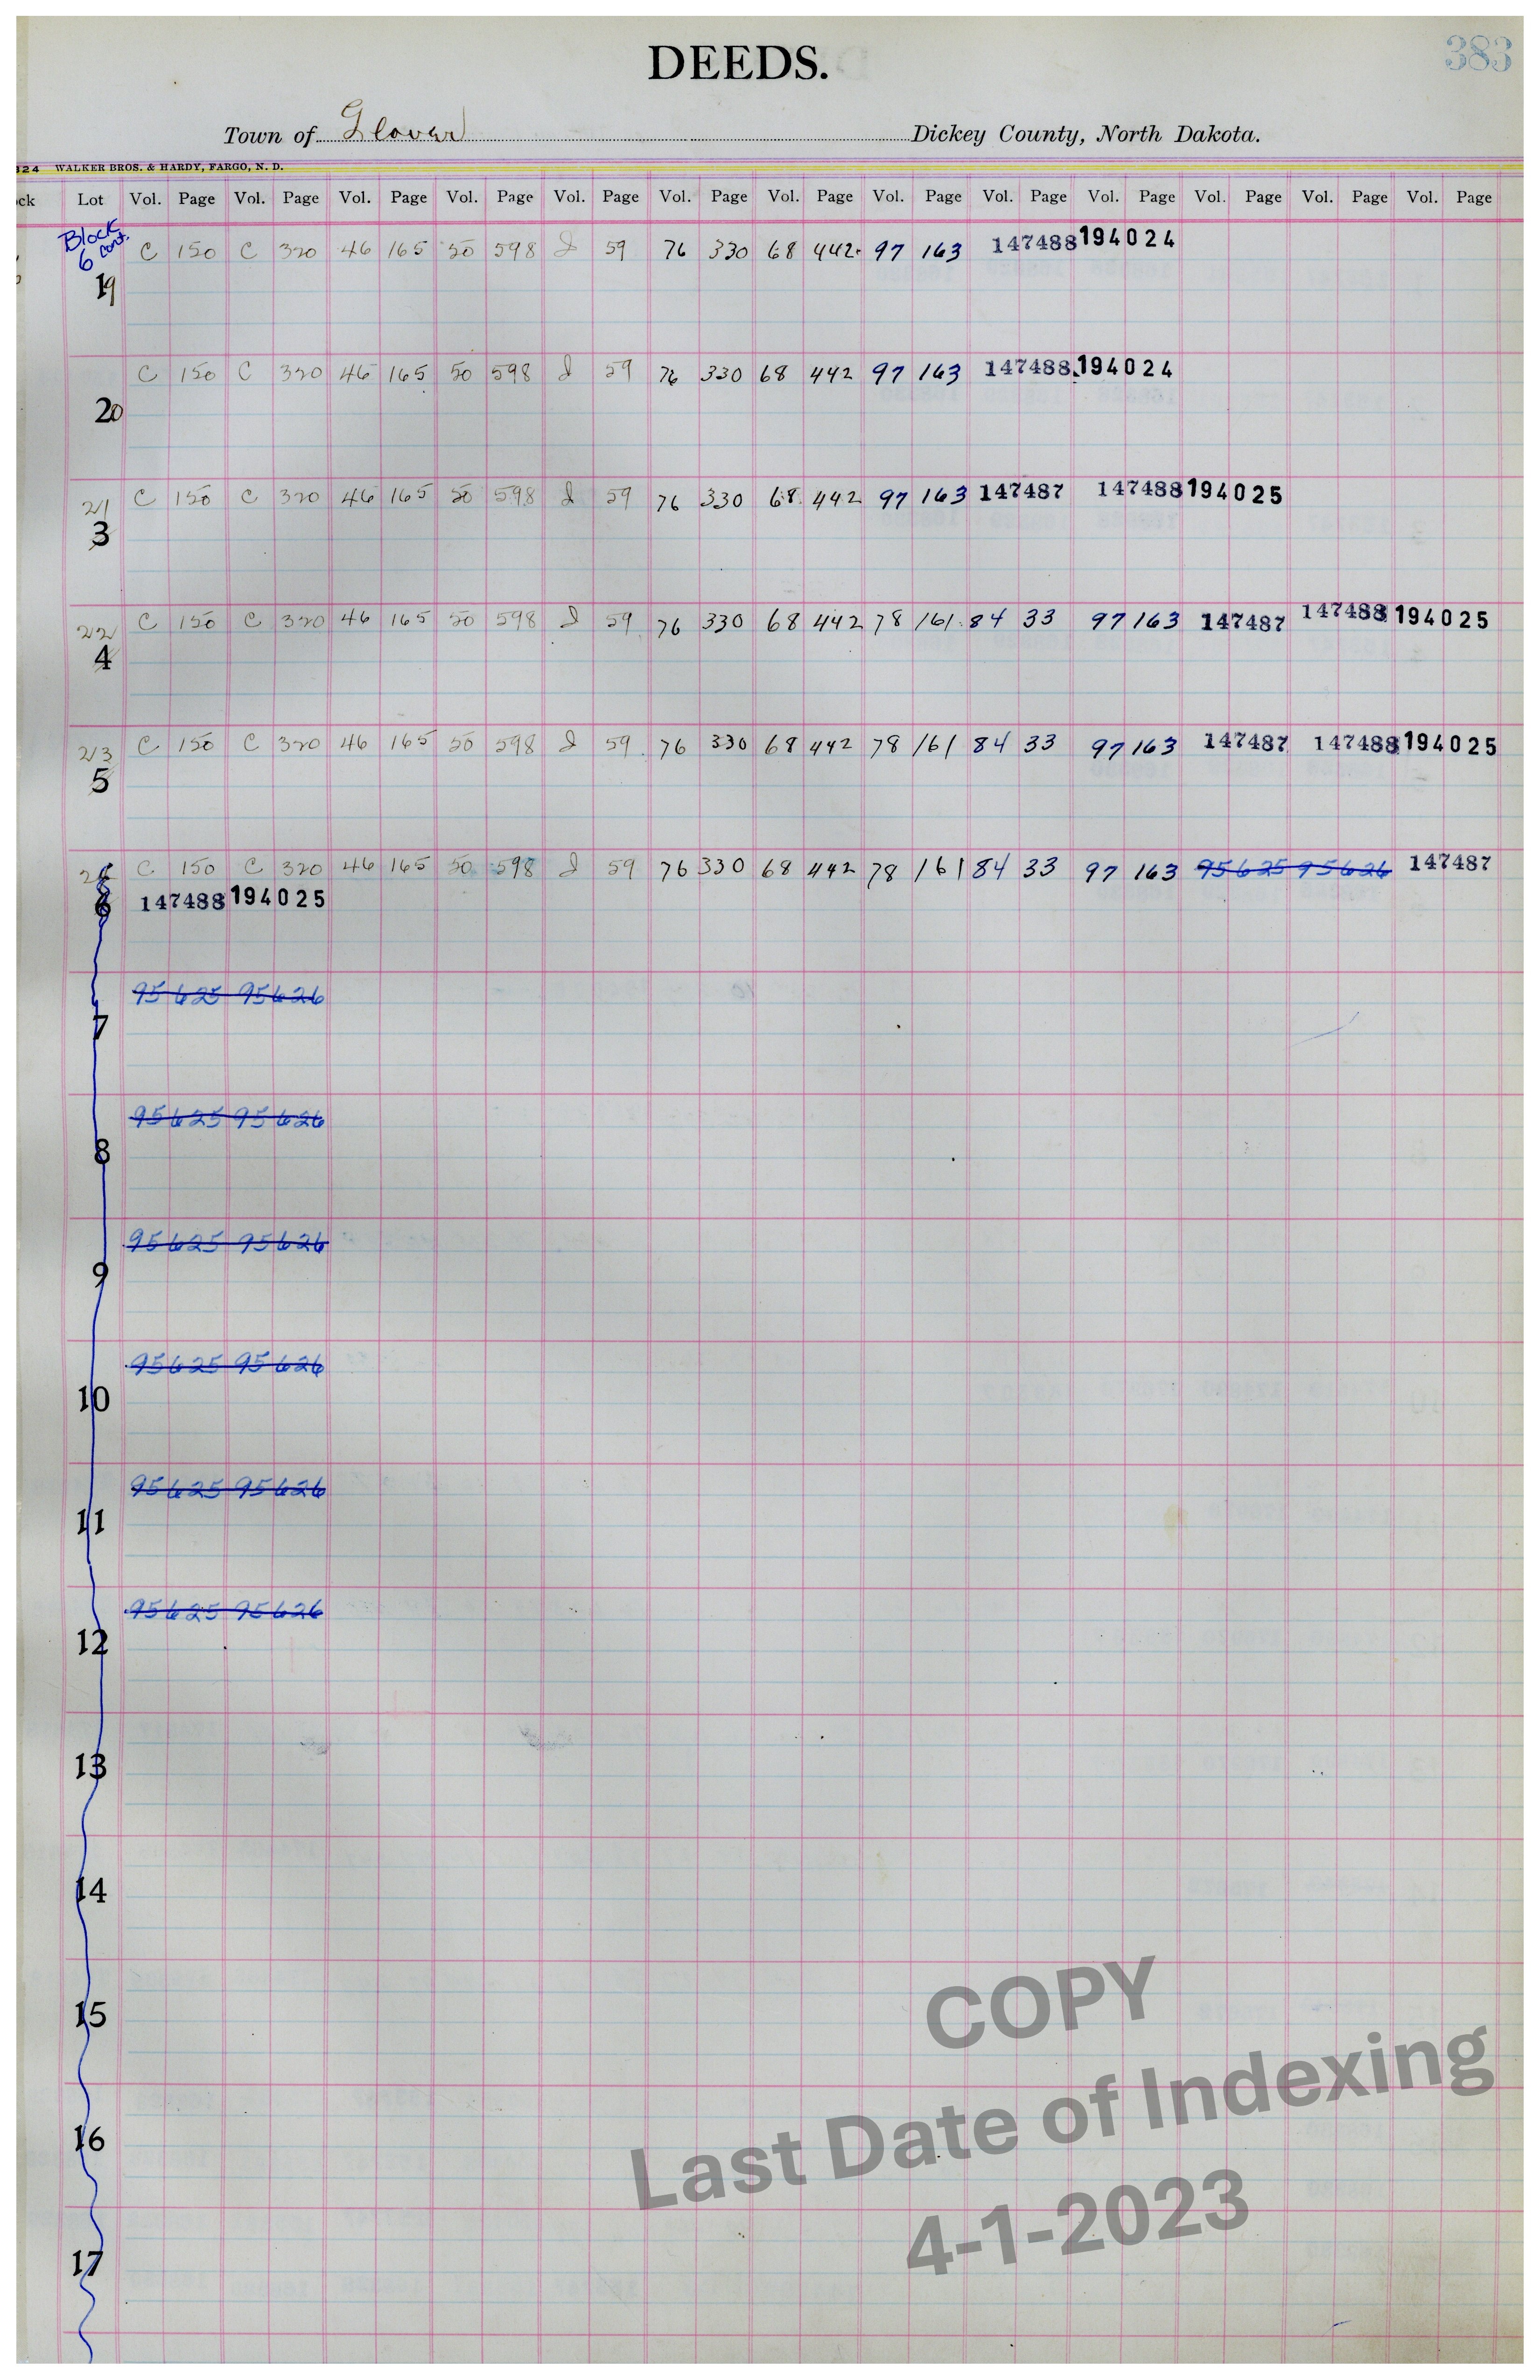 383
DEEDS.
Town of Glover Dickey County, North Dakota.
324 WALKER BROS. & HARDY, FARGO, N. D.
ck Lot Vol. Page Vol. Page Vol. Page Vol. Page Vol. Page Vol. Page Vol. Page Vol. Page Vol. Page Vol. Page Vol. Page Vol. Page Vol. Page
Block 6 cont.
C 150 C 320 46 165 50 598 I 59 76 330 68 442 97 163 147488 194024
19
C 150 C 320 46 165 50 598 I 59 76 330 68 442 97 163 147488 194024
20
21 C 150 C 320 46 165 50 598 I 59 76 330 68 442 97 163 147487 147488 194025
3
22 C 150 C 320 46 165 50 598 I 59 76 330 68 442 78 161 84 33 97 163 147487 147488 194025
4
23 C 150 C 320 46 165 50 598 I 59 76 330 68 442 78 161 84 33 97 163 147487 147488 194025
5
C 150 C 320 46 165 50 598 I 59 76 330 68 442 78 161 84 33 97 163 95625 95626 147487
6 147488 194025
95625 95626
7
95625 95626
8
95625 95626
9
95625 95626
10
95625 95626
11
95625 95626
12
13
14
15
16
17
COPY
Last Date of Indexing
4-1-2023